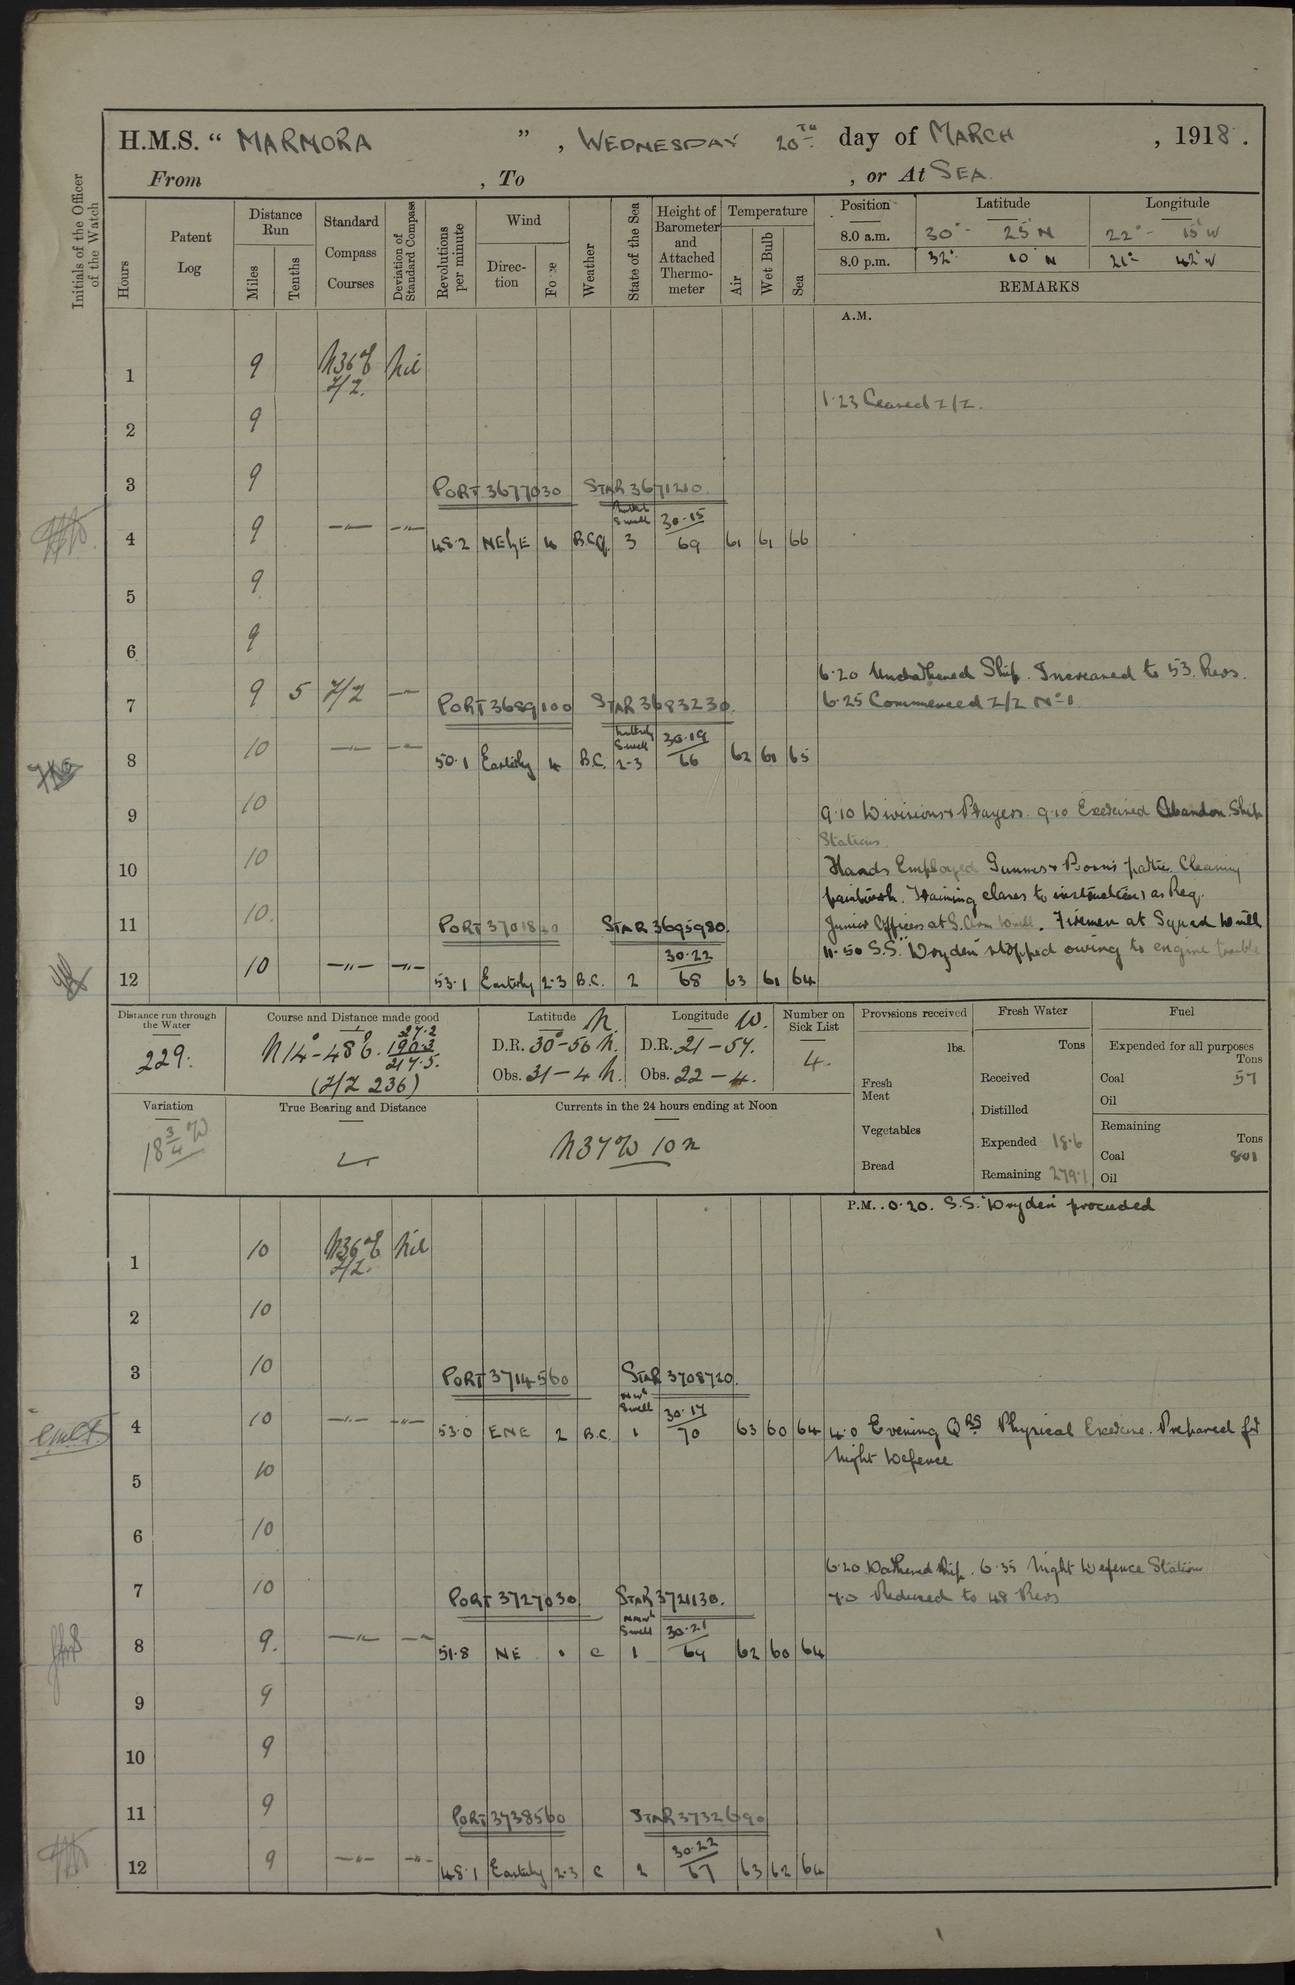 H.M.S. “ MARMORA ”, WEDNESDAY 20TH day of MARCH, 1918.
From , To , or At SEA.
Initials of the Officer of the Watch
Hours
Patent Log
Distance Run
Miles
Tenths
Standard Compass Courses
Deviation of Standard Compass
Revolutions per minute
Wind
Direction
Force
Weather
State of the Sea
Height of Barometer and Attached Thermometer
Temperature
Air
Wet Bulb
Sea
Position Latitude Longitude
8.0 a.m. 30° - 25' N 22° - 15' W
8.0 p.m. 32° 10' N 21° 42' W
REMARKS
A.M.
1 9 N36°E Z/Z. Nil
1.23 Ceased Z/Z.
2 9
3 9 PORT 3677030 STAR 3671210
4 9 —"— —"— 48.2 NE¼E 4 B.C.q. Swell 3 30.15 69 61 61 66
5 9
6 9
6.20 Undarkened Ship. Increased to 53. Revs.
7 9 5 Z/Z — PORT 3689100 STAR 3683230. 6.25 Commenced Z/Z No 1
8 10 —"— —"— 50.1 Easterly 4 B.C. Swell 2-3 30.19 66 62 61 65
9 10 9.10 Divisions & Prayers. 9.10 Exercised Abandon Ship
Stations
10 10 Hands Employed Gunners & Bosn's parties Cleaning
paintwork. Training classes to instructions as Req.
11 10. PORT 3701840 STAR 3695980. Junior Officers at S. Arm Drill. Firemen at Squad Drill
11.50 S.S. "Dryden" stopped owing to engine trouble
12 10 —"— —"— 53.1 Easterly 2-3 B.C. 2 30.22 68 63 61 64
Distance run through the Water
229.
Course and Distance made good
N14°-48'E. 27.2 190.3 217.5.
(Z/Z 236)
Latitude N.
D.R. 30°-56 N.
Obs. 31-4 N.
Longitude W.
D.R. 21-57.
Obs. 22-4.
Number on Sick List
4.
Provisions received
lbs.
Fresh Meat
Vegetables
Bread
Fresh Water
Tons
Received
Distilled
Expended 18.6
Remaining 279.1
Fuel
Expended for all purposes
Tons
Coal 57
Oil
Remaining
Tons
Coal 801
Oil
Variation
18 3/4 W
True Bearing and Distance
Currents in the 24 hours ending at Noon
N37W 10 n
P.M. 0.20. S.S. "Dryden" proceeded
1 10 N36°E Z/Z. Nil
2 10
3 10 PORT 3714560 STAR 3708720.
4 10 —"— —"— 53.0 ENE 2 B.C. Swell 1 30.17 70 63 60 64 4.0 Evening QRS Physical Exercise. Prepared for
Night Defence
5 10
6 10
6.20 Darkened ship. 6.35 Night Defence Stations
7 10 PORT 3727030 STAR 3721130. 7.0 Reduced to 48 Revs
8 9. —"— —"— 51.8 NE 1 C Swell 1 30.21 69 62 60 64
9 9
10 9
11 9 PORT 3738560 STAR 3732690
12 9 —"— —"— 48.1 Easterly 2-3 C 2 30.22 67 63 62 64